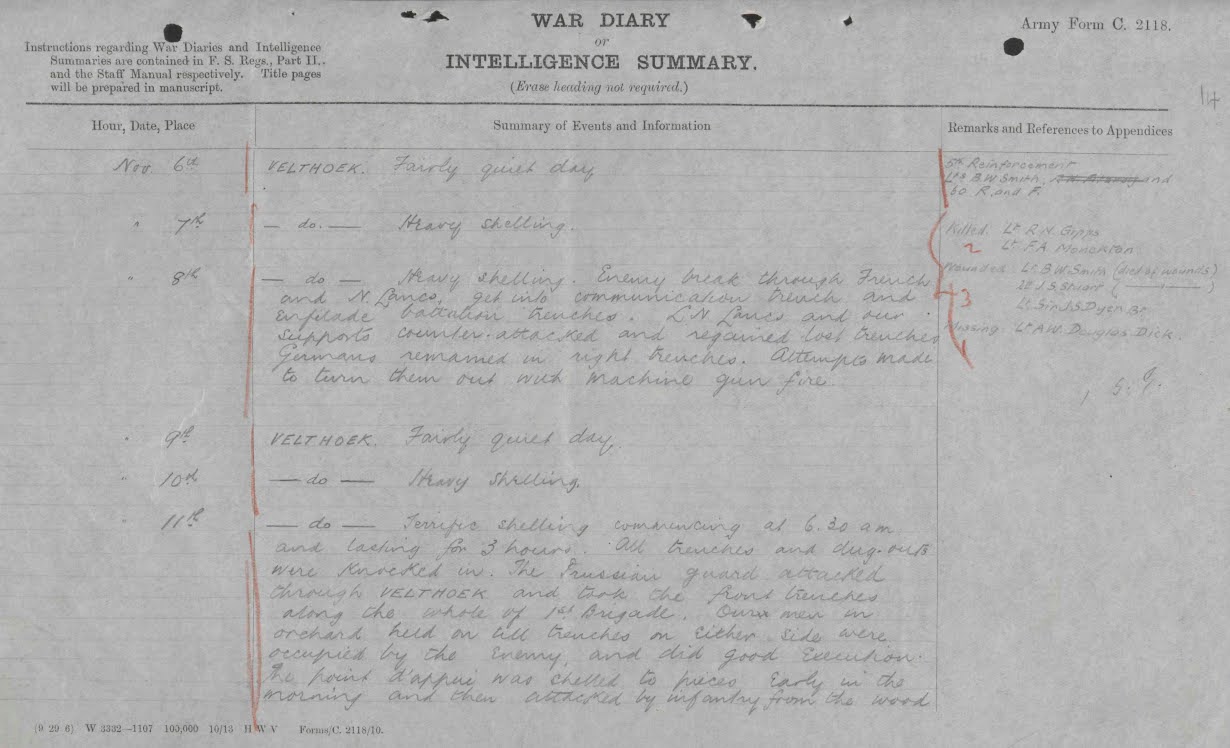 WAR DIARY
or
INTELLIGENCE SUMMARY.
(Erase heading not required.)
Army Form C. 2118.
Instructions regarding War Diaries and Intelligence
Summaries are contained in F. S. Regs., Part II.,
and the Staff Manual respectively. Title pages
will be prepared in manuscript.
14
Hour, Date, Place
Summary of Events and Information
Remarks and References to Appendices
Nov. 6th VELTHOEK. Fairly quiet day
5th Reinforcement
Lts B.W. Smith, and
50 R. and F.
" 7th — do. — Heavy shelling.
Killed. Lt R.N. Gipps
2 Lt. F.A. Monckton
" 8th — do — Heavy shelling. Enemy break through French
and N. Lancs, get into communication trench and
Enfilade battalion trenches. L.N Lancs and our
supports counter-attacked and regained lost trenches
Germans remained in right trenches. Attempts made
to turn them out with machine gun fire.
Wounded. Lt B.W. Smith (died of wounds)
3 Lt J.S. Stuart ( —— )
Lt. Sir J.S. Dyer Bt
Missing. Lt A.W. Douglas Dick.
1
" 9th VELTHOEK. Fairly quiet day.
" 10th — do — Heavy Shelling.
" 11th — do — Terrific shelling commencing at 6.30 am
and lasting for 3 hours. All trenches and dug-outs
were knocked in. The Prussian guard attacked
through VELTHOEK and took the front trenches
along the whole of 1st Brigade. Our men in
orchard held on till trenches on Either Side were
occupied by the Enemy, and did good Execution.
The point d'appui was shelled to pieces Early in the
morning and then attacked by infantry from the wood
(9 29 6) W 3332—1107 100,000 10/13 H W V Forms/C. 2118/10.